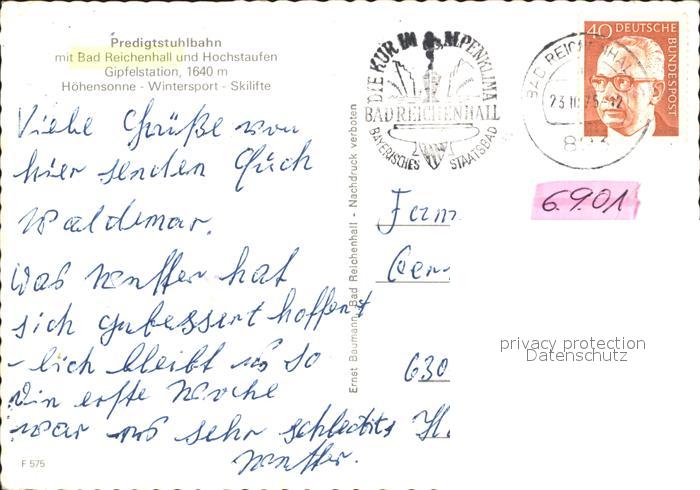 Predigtstuhlbahn
mit Bad Reichenhall und Hochstaufen
Gipfelstation, 1640 m
Höhensonne - Wintersport - Skilifte
DIE KUR IM ALPENKLIMA
BAD REICHENHALL
BAYERISCHES STAATSBAD
BAD REICHENHALL
23.10.75-12
40 DEUTSCHE BUNDESPOST
6.9.01
Viele Grüße von
hier senden Euch
Waldemar.
Das Wetter hat
sich gebessert hoffent
-lich bleibt es so
Die erste Woche
war es sehr schlechtes
Wetter.
Ernst Baumann, Bad Reichenhall - Nachdruck verboten
Fam
630
privacy protection
Datenschutz
F 575